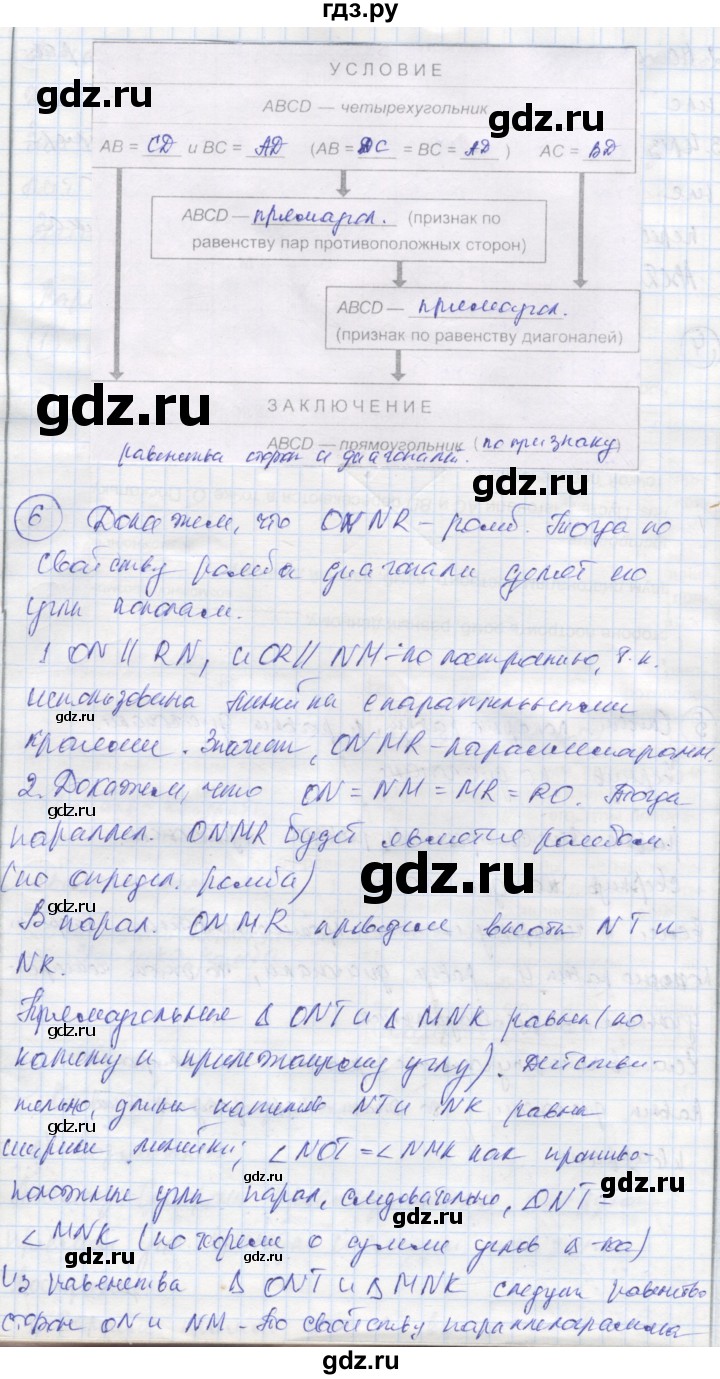 гдз.ру
УСЛОВИЕ
ABCD — четырехугольник
AB = CD и BC = AD (AB = DC = BC = AD ) AC = BD
ABCD — прямоугол. (признак по
равенству пар противоположных сторон)
ABCD — прямоугол.
(признак по равенству диагоналей)
ЗАКЛЮЧЕНИЕ
ABCD — прямоугольник (по признаку)
равенства сторон и диагонали.
6 Докажем, что ONNR – ромб. Тогда по
свойству ромба диагонали делят его
углы пополам.
1 ON || RN, и OR || NM – по построению, т.к.
использована линейка с параллельными
кромками. Значит, ONMR – параллелограмм.
2. Докажем, что ON = NM = MR = RO. Тогда
параллел. ONMR будет являться ромбом.
(по определ. ромба)
В парал. ONMR проведем высоты NT и
NK.
Прямоугольные Δ ONT и Δ MNK равны (по
катету и прилежащему углу). Действи
тельно, длины катетов NT и NK равны
ширине линейки; ∠NOT = ∠NMK как противо-
положные углы парал, следовательно, ∠ONT =
∠MNK (по теореме о сумме углов Δ-ка)
Из равенства Δ ONT и Δ MNK следует равенство
сторон ON и NM – По свойству параллелограмма
gdz.ru